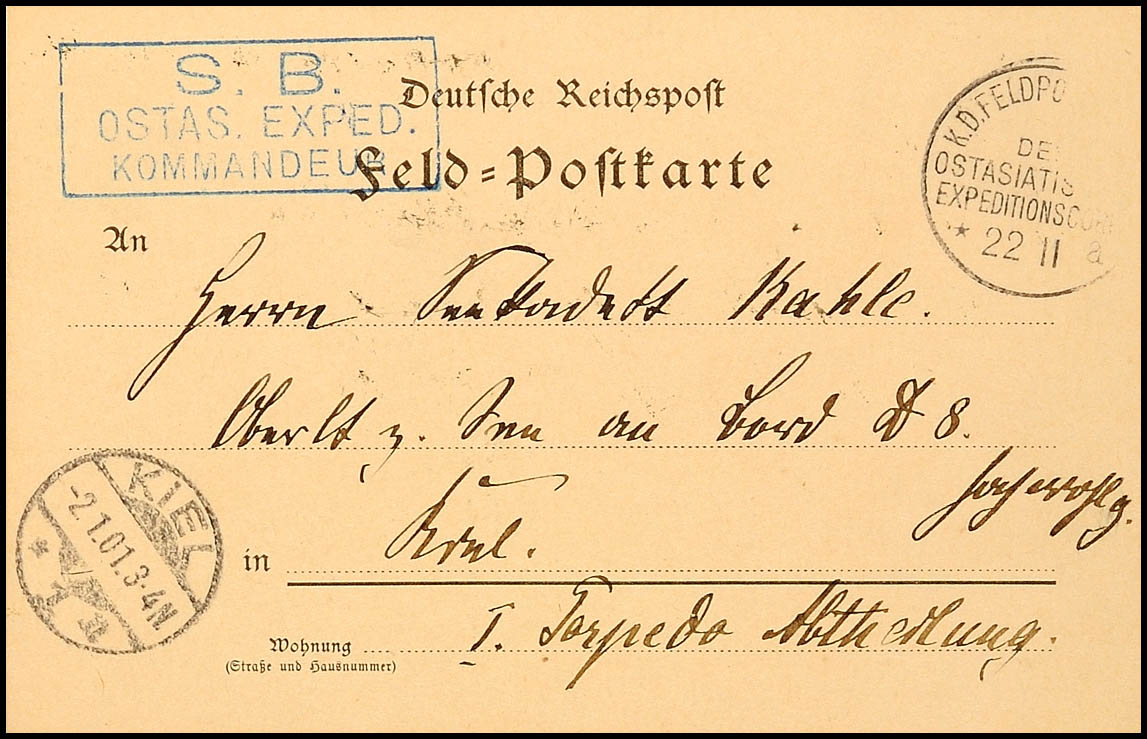 S. B.
OSTAS. EXPED.
KOMMANDEUR
Deutsche Reichspost
Feld=Postkarte
K.D. FELDPO
DE
OSTASIATIS
EXPEDITIONSCOR
* 22 11 a
An
Herrn Seekadett Kahle.
Oberlt z. See an Bord D 8.
Hochwohlg.
in Kiel.
KIEL
-2.1.01.3-4N
* 1 a
I. Torpedo Abtheilung.
Wohnung
(Straße und Hausnummer)